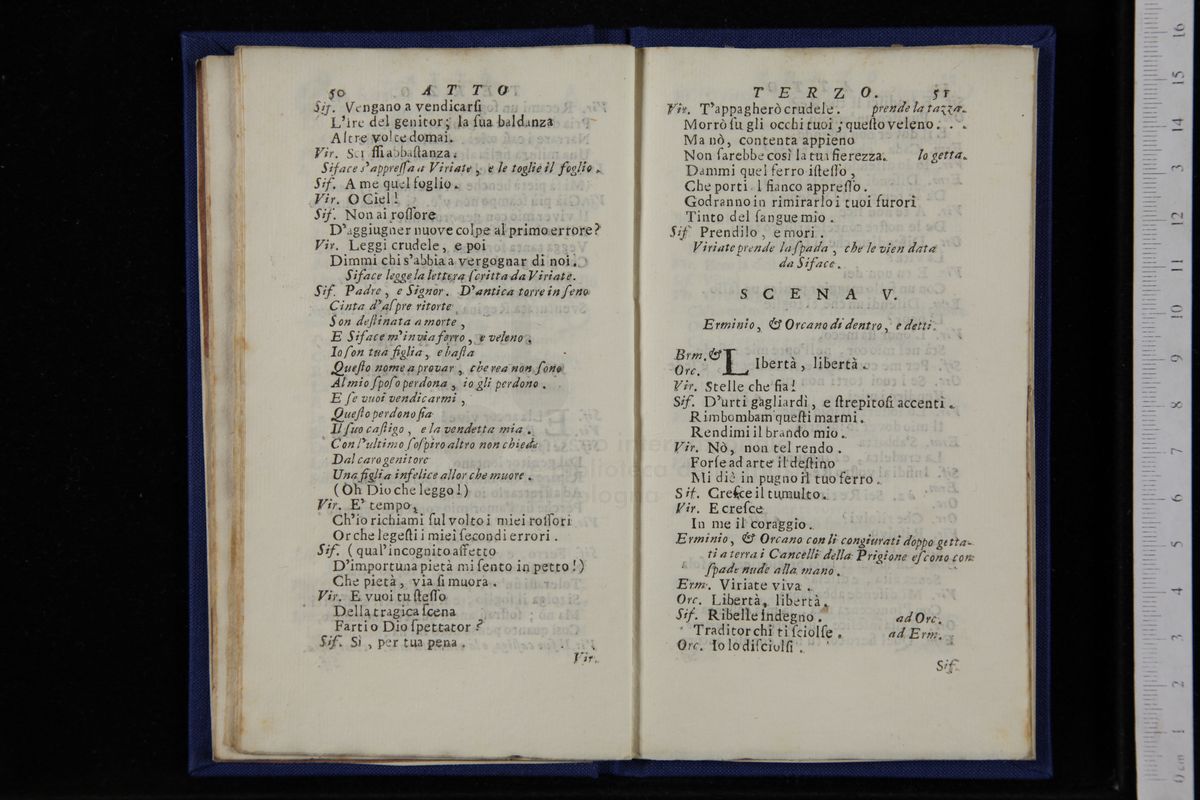 50 ATTO
Sif. Vengano a vendicarſi
L'ire del genitor; la ſua baldanza
Altre volte domai.
Vir. ſſi abbaſtanza.
Siface s'appreſſa a Viriate, e le toglie il foglio.
Sif. A me quel foglio.
Vir. O Ciel!
Sif. Non ai roſſore
D'aggiugner nuove colpe al primo errore?
Vir. Leggi crudele, e poi
Dimmi chi s'abbia a vergognar di noi.
Siface legge la lettera ſcritta da Viriate.
Sif. Padre, e Signor. D'antica torre in ſeno
Cinta d'aſpre ritorte
Son deſtinata a morte,
E Siface m'invia ferro, e veleno.
Io ſon tua figlia, e baſta
Queſto nome a provar, che rea non ſono
Al mio ſpoſo perdona, io gli perdono.
E ſe vuoi vendicarmi,
Queſto perdono ſia
Il ſuo caſtigo, e la vendetta mia.
Con l'ultimo ſoſpiro altro non chiede
Dal caro genitore
Una figlia infelice allor che muore.
(Oh Dio che leggo!)
Vir. E' tempo,
Ch'io richiami ſul volto i miei roſſori
Or che legeſti i miei ſecondi errori.
Sif. (qual'incognito affetto
D'importuna pietà mi ſento in petto!)
Che pietà, via ſi muora.
Vir. E vuoi tu ſteſſo
Della tragica ſcena
Farti o Dio ſpettator?
Sif. Sì, per tua pena.
Vir.
TERZO. 51
Vir. T'appagherò crudele. prende la tazza.
Morrò ſu gli occhi tuoi; queſto veleno...
Ma nò, contenta appieno
Non ſarebbe così la tua fierezza. lo getta.
Dammi quel ferro iſteſſo,
Che porti l fianco appreſſo.
Godranno in rimirarlo i tuoi furori
Tinto del ſangue mio.
Sif Prendilo, e mori.
Viriate prende la ſpada, che le vien data
da Siface.
SCENA V.
Erminio, & Orcano di dentro, e detti.
Erm. &
Orc. Libertà, libertà.
Vir. Stelle che ſia!
Sif. D'urti gagliardi, e ſtrepitoſi accenti.
Rimbombam queſti marmi.
Rendimi il brando mio.
Vir. Nò, non tel rendo.
Forſe ad arte il deſtino
Mi diè in pugno il tuo ferro.
Sif. Creſce il tumulto.
Vir. E creſce
In me il coraggio.
Erminio, & Orcano con li congiurati doppo getta-
ti a terra i Cancelli della Prigione eſcono con
ſpade nude alla mano.
Erm. Viriate viva.
Orc. Libertà, libertà.
Sif. Ribelle indegno. ad Orc.
Traditor chi ti ſciolſe. ad Erm.
Orc. Io lo diſciolſi.
Sif.